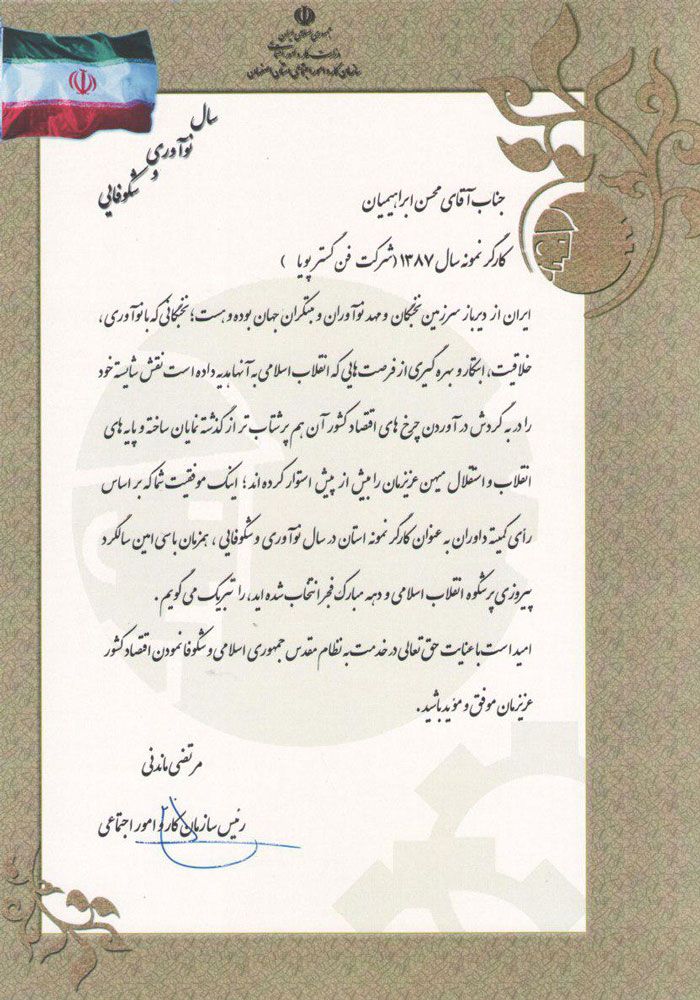 جمهوری اسلامی ایران
وزارت کار و امور اجتماعی
سازمان کار و امور اجتماعی استان اصفهان
سال
نوآوری
و
شکوفایی
جناب آقای محسن ابراهیمیان
کارگر نمونه سال ۱۳۸۷ (شرکت فن گستر پویا )
ایران از دیرباز سرزمین نخبگان و مهد نوآوران و مبتکران جهان بوده و هست؛ نخبگانی که با نوآوری،
خلاقیت، ابتکار و بهره گیری از فرصت هایی که انقلاب اسلامی به آنها هدیه داده است نقش شایسته خود
را در به گردش در آوردن چرخ های اقتصاد کشور آن هم پرشتاب تر از گذشته نمایان ساخته و پایه های
انقلاب و استقلال میهن عزیزمان را بیش از پیش استوار کرده اند؛ اینک موفقیت شما که بر اساس
رأی کمیته داوران به عنوان کارگر نمونه استان در سال نوآوری و شکوفایی ، همزمان با سی امین سالگرد
پیروزی پرشکوه انقلاب اسلامی و دهه مبارک فجر انتخاب شده اید، را تبریک می گویم .
امید است با عنایت حق تعالی در خدمت به نظام مقدس جمهوری اسلامی و شکوفا نمودن اقتصاد کشور
عزیزمان موفق و مؤید باشید .
مرتضی ماندنی
رئیس سازمان کار و امور اجتماعی